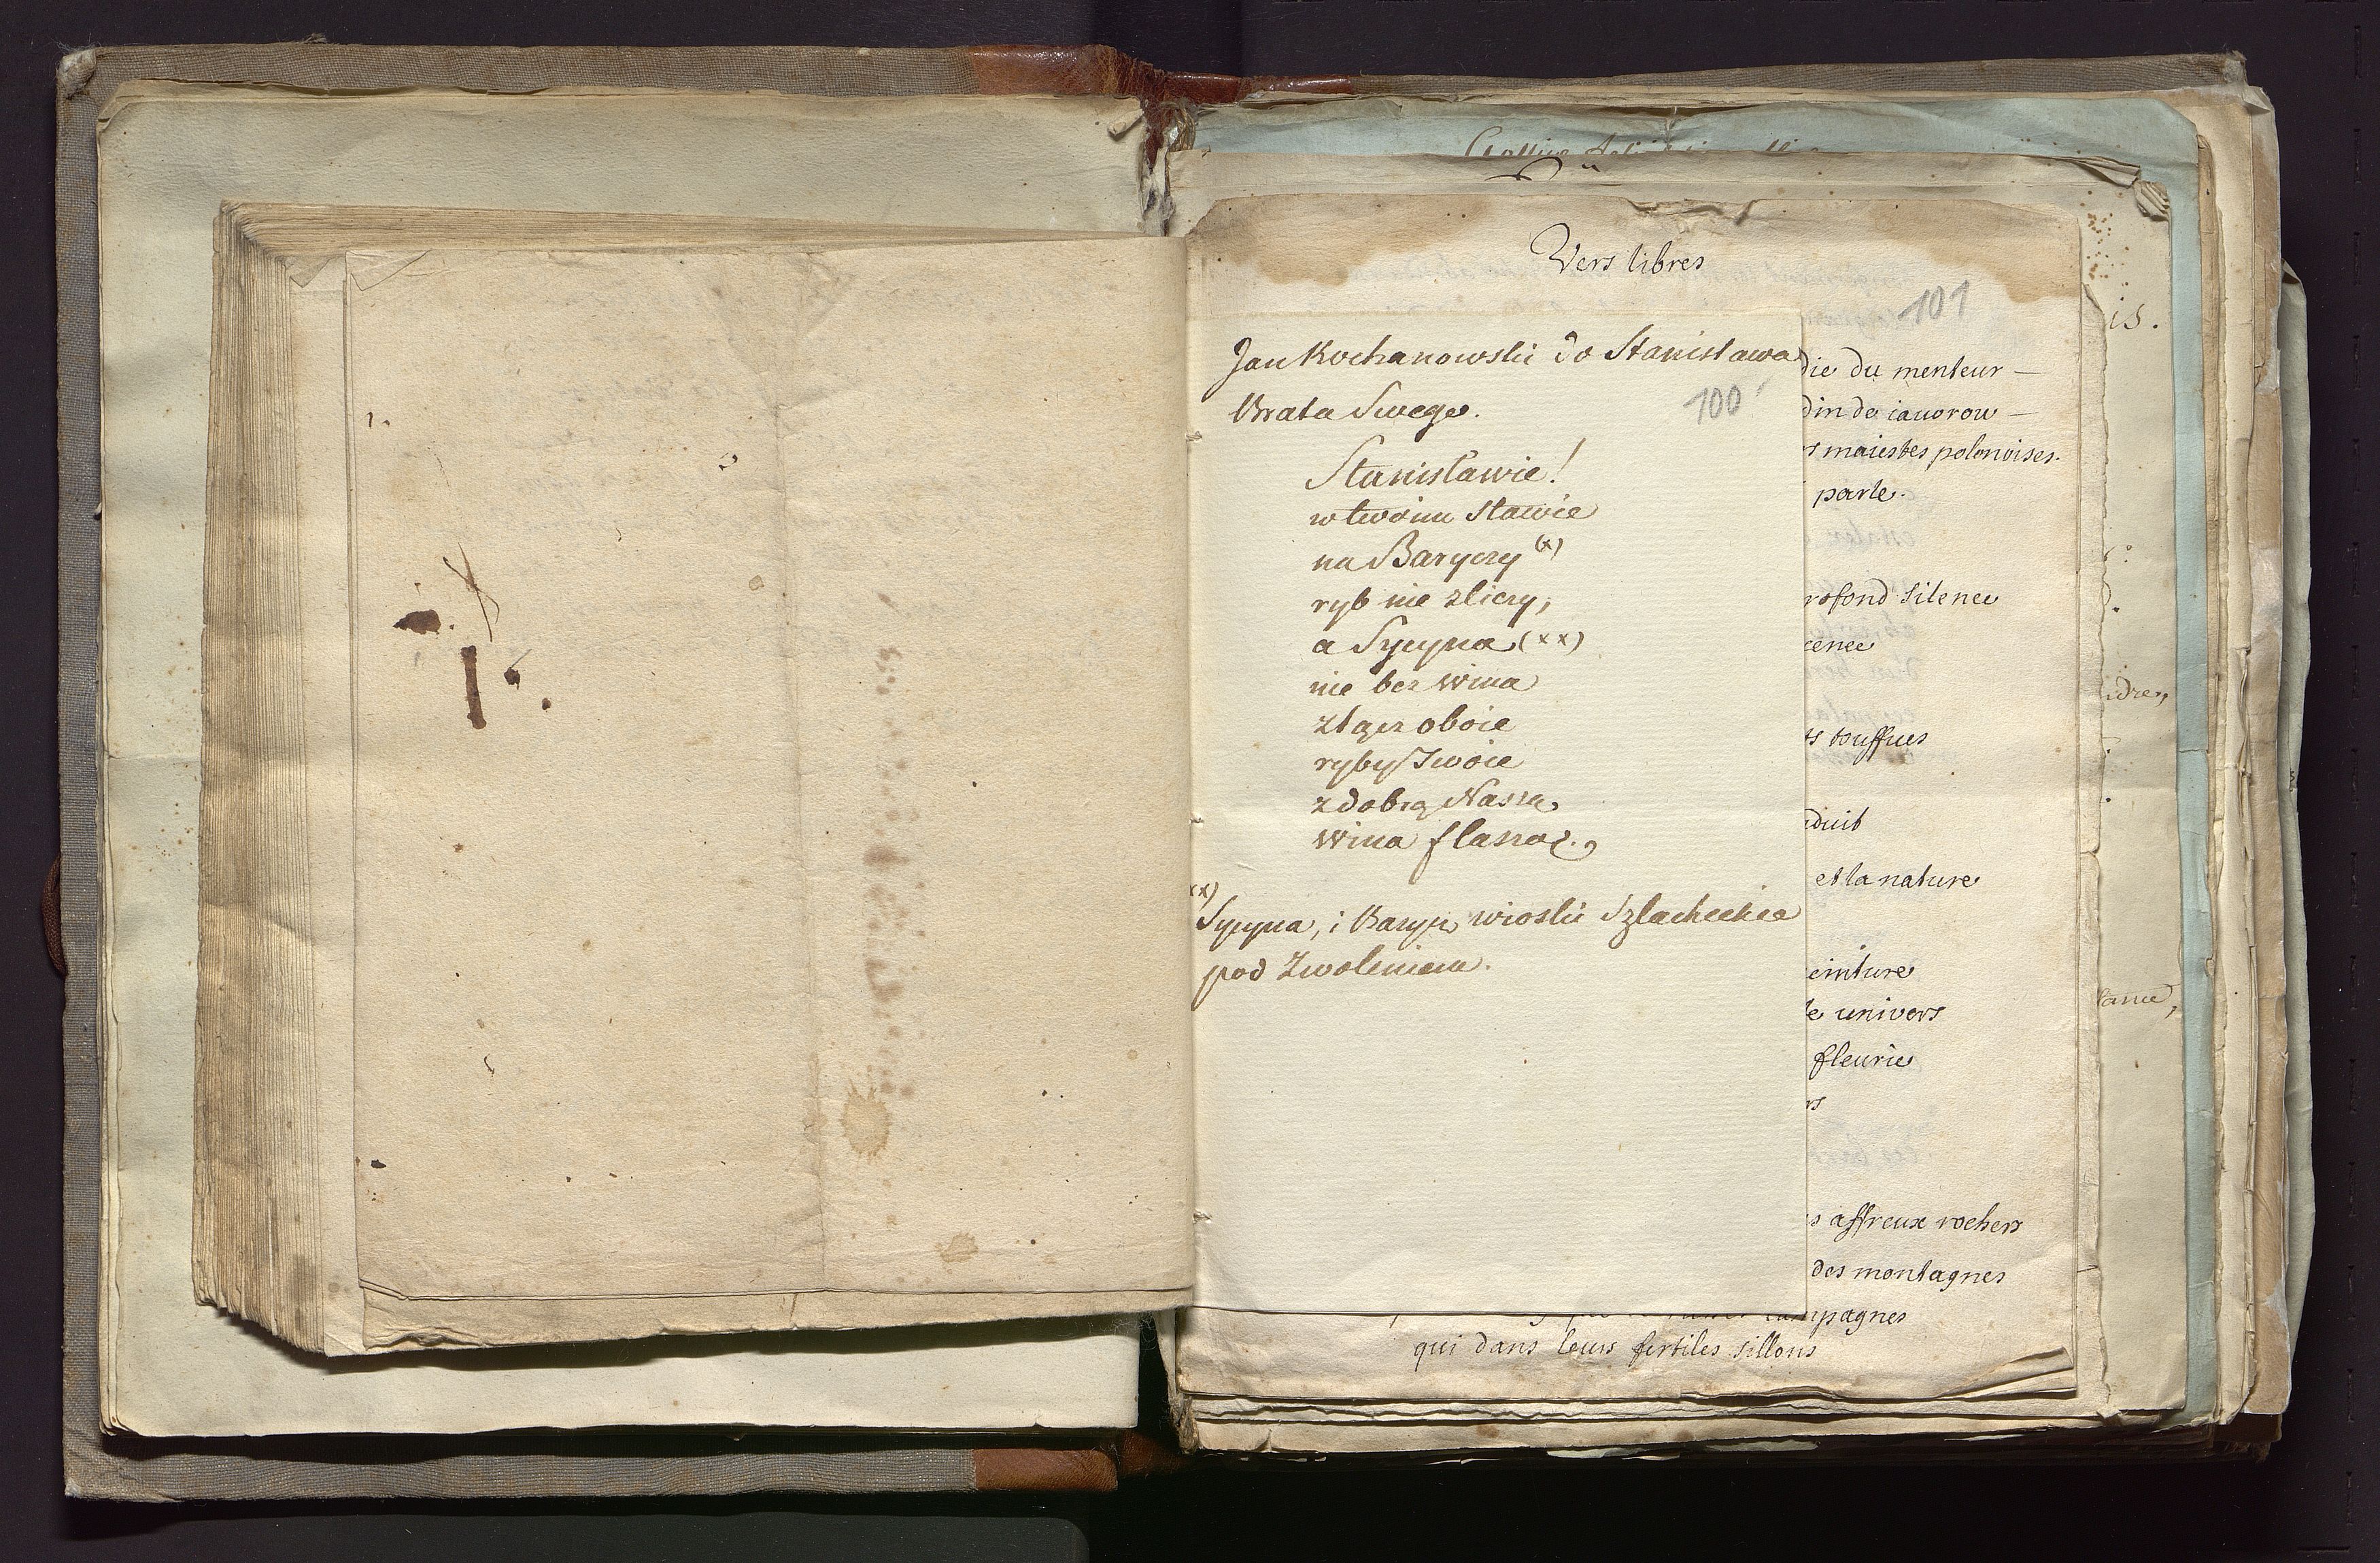 Vers libres
101
Jan Kochanowski do Stanisława
Brata Swego.
100
Stanisławie!
w twoim stawie
na Baryczy (x)
ryb nie zliczy,
a Sycyna (xx)
nie bez wina
złącz oboie
ryby Twoie
z dobrą Naszą
wina flaszą.
xx)
Sycyna, i Barycz wioski Szlacheckie
pod Zwoleniem.
die du menteur —
din de iauorow —
s maiestes polonoises.
parle.
rofond silence
cence
ts touffues
duit
et la nature
einture
le univers
fleurie
rs
s affreux rochers
des montagnes
campagnes
qui dans leurs fertiles sillons
is.
idres,